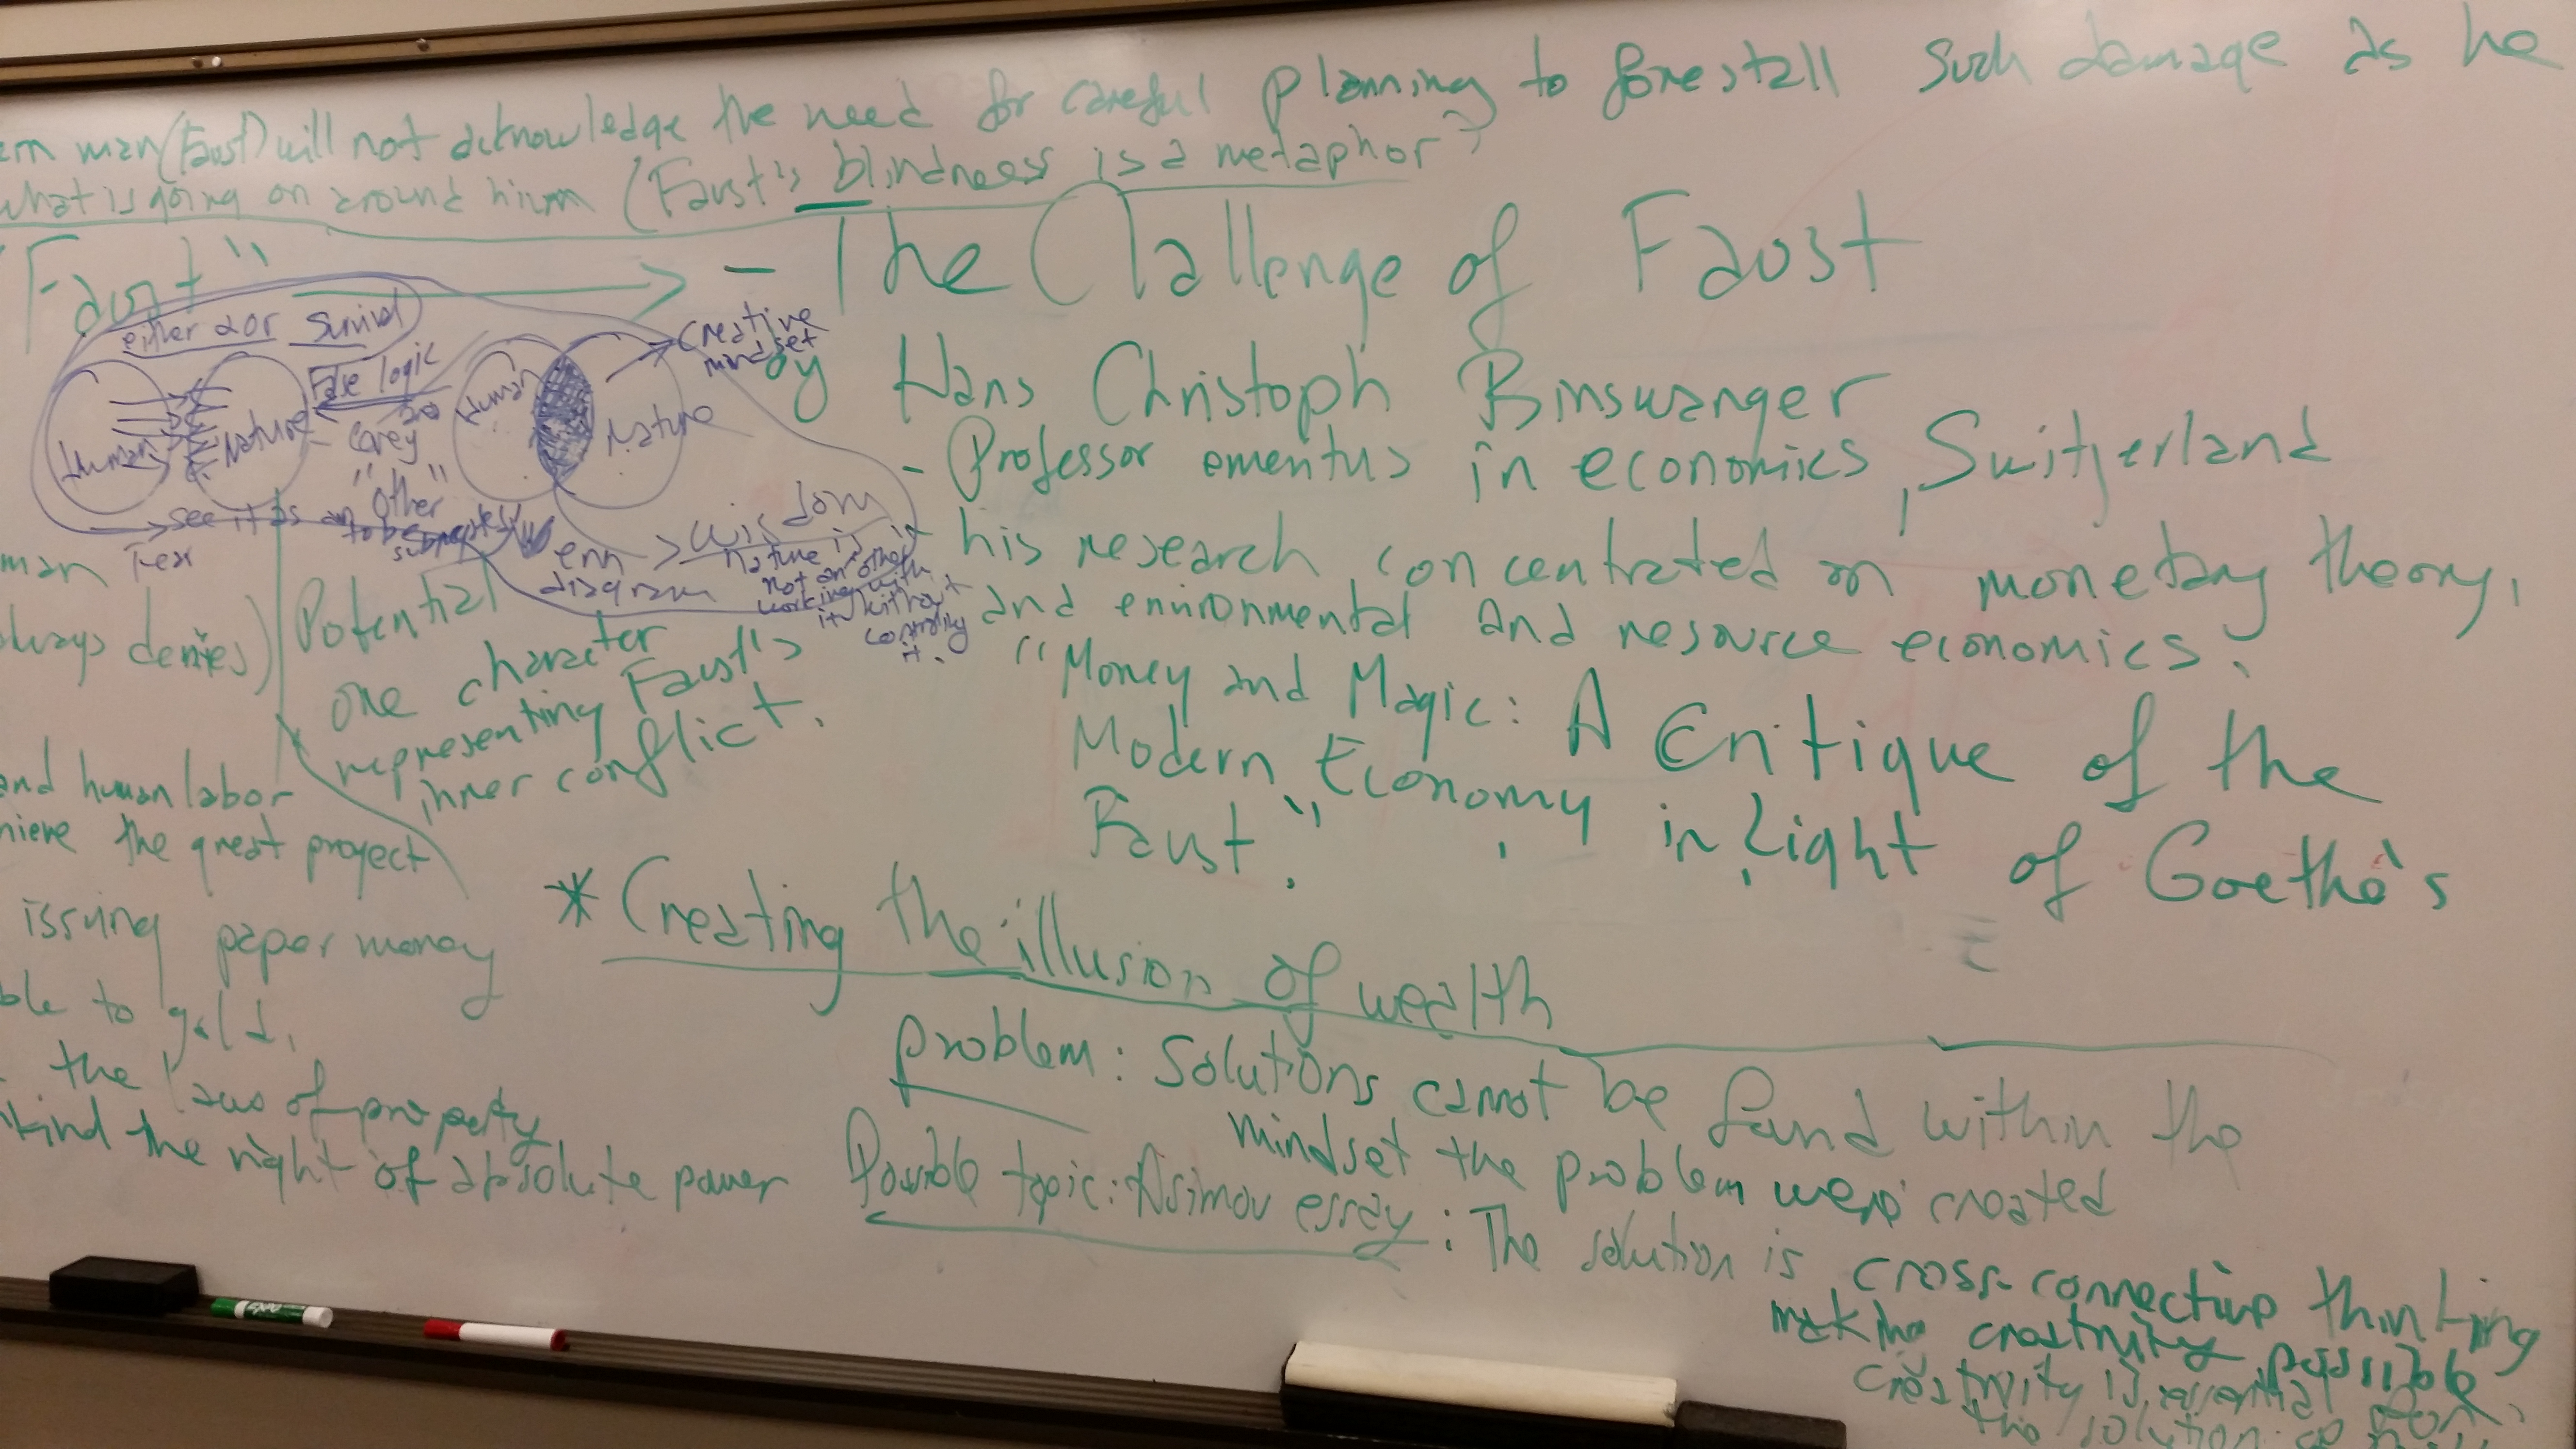 man (Faust) will not acknowledge the need for careful planning to forestall such damage as he
what is going on around him (Faust's blindness is a metaphor)
"Faust" → - The Challenge of Faust
by Hans Christoph Binswanger
- Professor emeritus in economics, Switzerland
- his research concentrated on monetary theory,
and environmental and resource economics.
"Money and Magic: A Critique of the
Modern Economy in Light of Goethe's
Faust."
* Creating the illusion of wealth
problem: Solutions cannot be found within the
mindset the problem were created
Possible topic: Asimov essay: The solution is cross-connecting thinking
making creativity possible
creativity is essential for
the solution
either or survival
False logic
Human
Nature
"Other"
see it as an
to be
Human
Nature
creative
mindset
enn
diagram
→ wisdom
nature is
not an other
working with
it without
controlling
it.
man
always denies)
Potential
one character
representing Faust's
inner conflict.
and human labor
the great project
issuing paper money
to gold.
the laws of property
the right of absolute power
EXPO